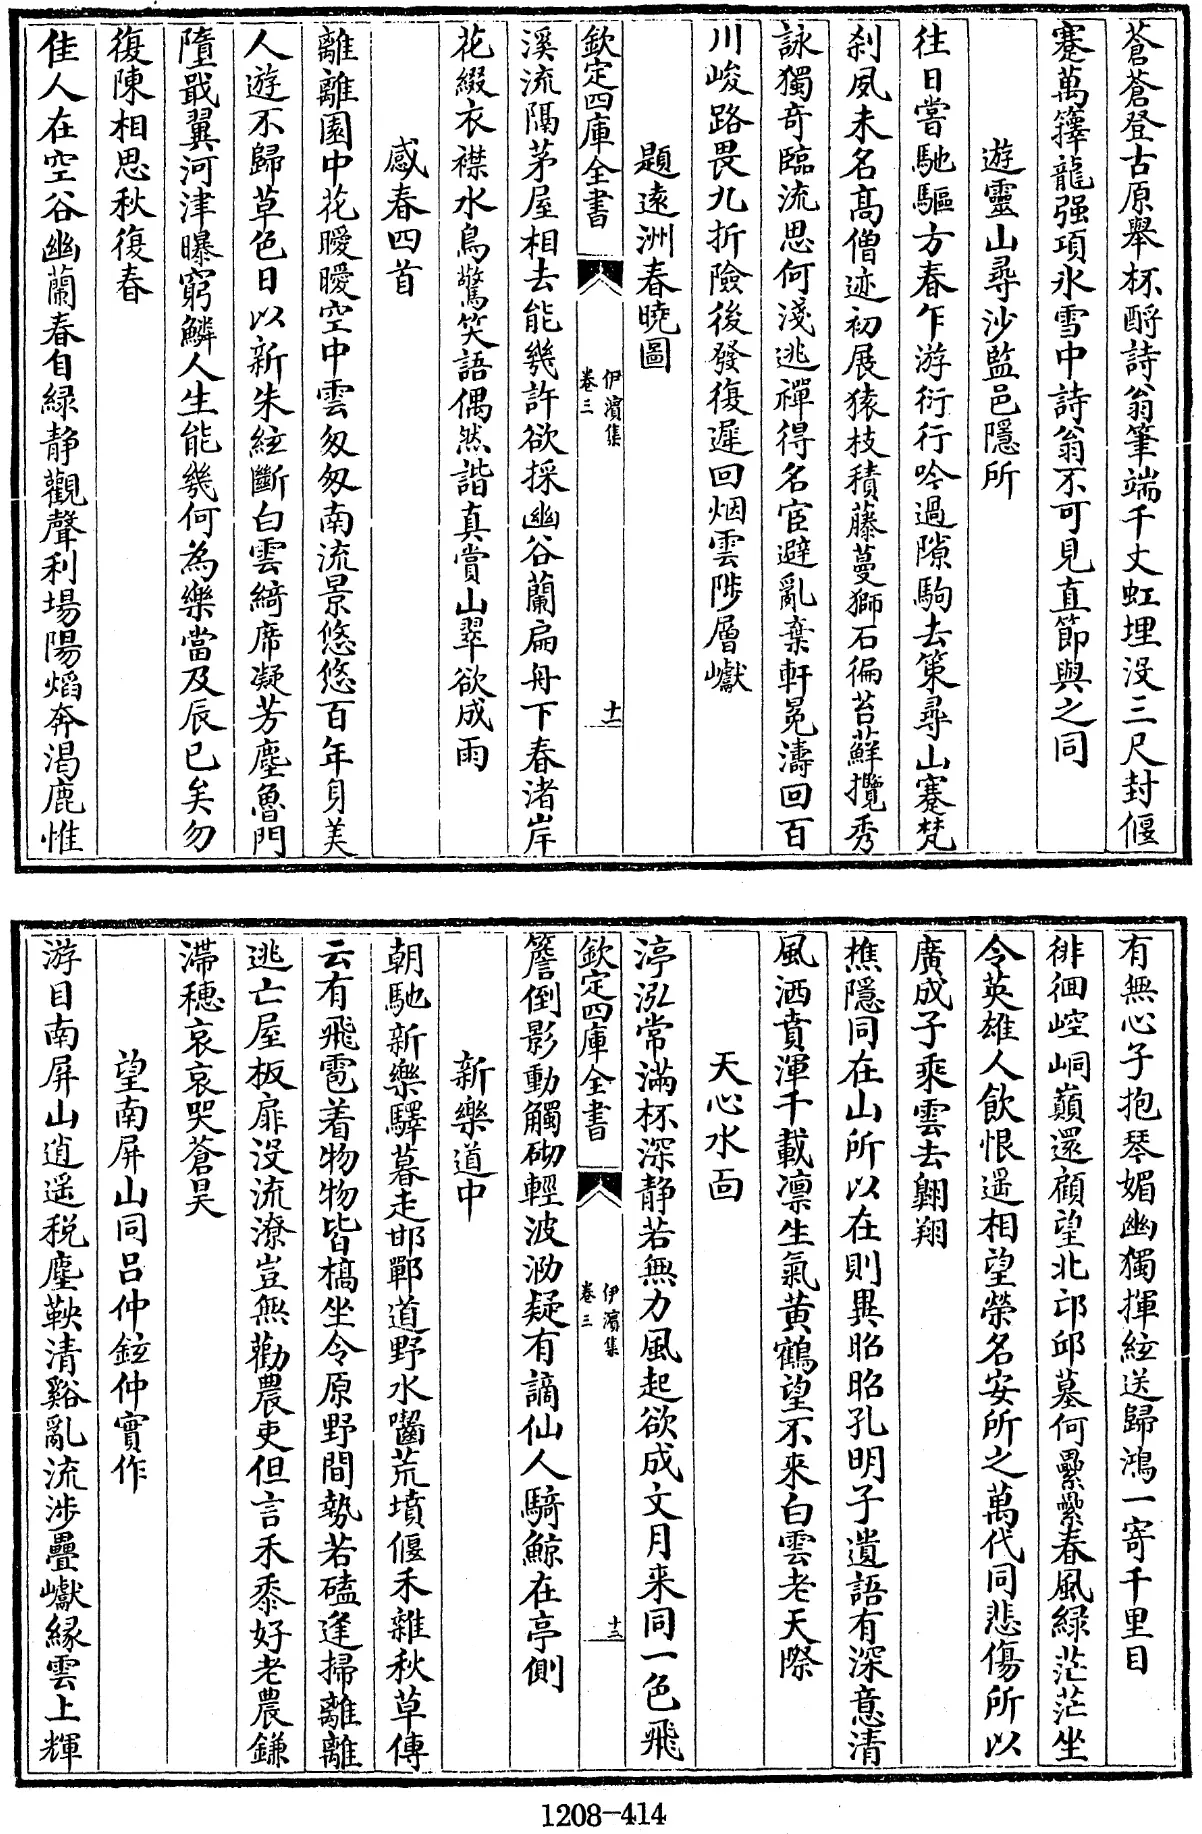 蒼蒼登古原舉杯酹詩翁筆端千丈虹埋没三尺封偃
蹇萬籜龍强項氷雪中詩翁不可見直節與之同
遊靈山尋沙監邑隱所
往日嘗馳驅方春乍游衍行吟過隙駒去策尋山蹇梵
刹夙未名髙僧迹初展猿枝積藤蔓獅石徧苔蘚攬秀
詠獨奇臨流思何淺逃禪得名宦避亂棄軒冕濤回百
川峻路畏九折險後發復遲回烟雲陟層巘
題遠洲春曉圖
溪流隔茅屋相去能幾許欲採幽谷蘭扁舟下春渚岸
花綴衣襟水鳥驚笑語偶然諧真賞山翠欲成雨
感春四首
離離園中花曖曖空中雲匆匆南流景悠悠百年身美
人遊不歸草色日以新朱絃斷白雲綺席凝芳塵魯門
墮戢翼河津曝窮鱗人生能幾何為樂當及辰已矣勿
復陳相思秋復春
佳人在空谷幽蘭春自緑静觀聲利場陽熖奔渴鹿惟
欽定四庫全書
伊濱集
卷三
十二
有無心子抱琴媚幽獨揮絃送歸鴻一寄千里目
徘徊崆峒巔還顧望北邙邱墓何纍纍春風緑茫茫坐
令英雄人飲恨遥相望榮名安所之萬代同悲傷所以
廣成子乘雲去翺翔
樵隱同在山所以在則異昭昭孔明子遺語有深意清
風洒賁渾千載凛生氣黄鶴望不来白雲老天際
天心水面
渟泓常滿杯深静若無力風起欲成文月来同一色飛
簷倒影動觸砌輕波泐疑有謫仙人騎鯨在亭側
新樂道中
朝馳新樂驛暮走邯鄲道野水囓荒墳偃禾雜秋草傳
云有飛雹着物物皆槁坐令原野間勢若磕逢掃離離
逃亡屋板扉没流潦豈無勸農吏但言禾黍好老農鎌
滯穗哀哀哭蒼昊
望南屏山同吕仲鉉仲實作
游目南屏山逍遥税塵鞅清谿亂流涉疊巘縁雲上輝
欽定四庫全書
伊濱集
卷三
十三
1208-414